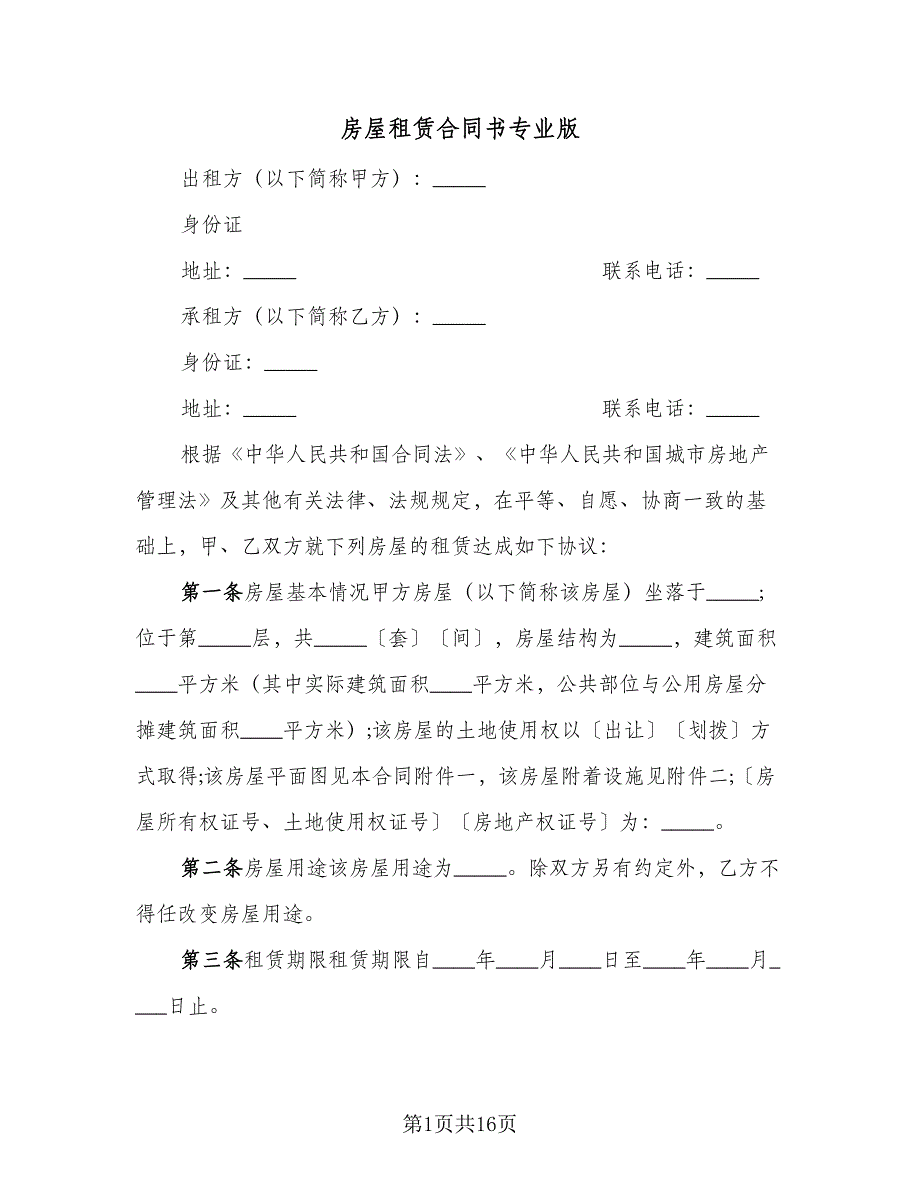 房屋租赁合同书专业版
出租方（以下简称甲方）：_____
身份证
地址：_____ 联系电话：_____
承租方（以下简称乙方）：_____
身份证：_____
地址：_____ 联系电话：_____
根据《中华人民共和国合同法》、《中华人民共和国城市房地产
管理法》及其他有关法律、法规规定，在平等、自愿、协商一致的基
础上，甲、乙双方就下列房屋的租赁达成如下协议：
第一条房屋基本情况甲方房屋（以下简称该房屋）坐落于_____;
位于第_____层，共_____〔套〕〔间〕，房屋结构为_____，建筑面积
____平方米（其中实际建筑面积____平方米，公共部位与公用房屋分
摊建筑面积____平方米）;该房屋的土地使用权以〔出让〕〔划拨〕方
式取得;该房屋平面图见本合同附件一，该房屋附着设施见附件二;〔房
屋所有权证号、土地使用权证号〕〔房地产权证号〕为：_____。
第二条房屋用途该房屋用途为_____。除双方另有约定外，乙方不
得任改变房屋用途。
第三条租赁期限租赁期限自____年____月____日至____年____月_
___日止。
第1页共16页